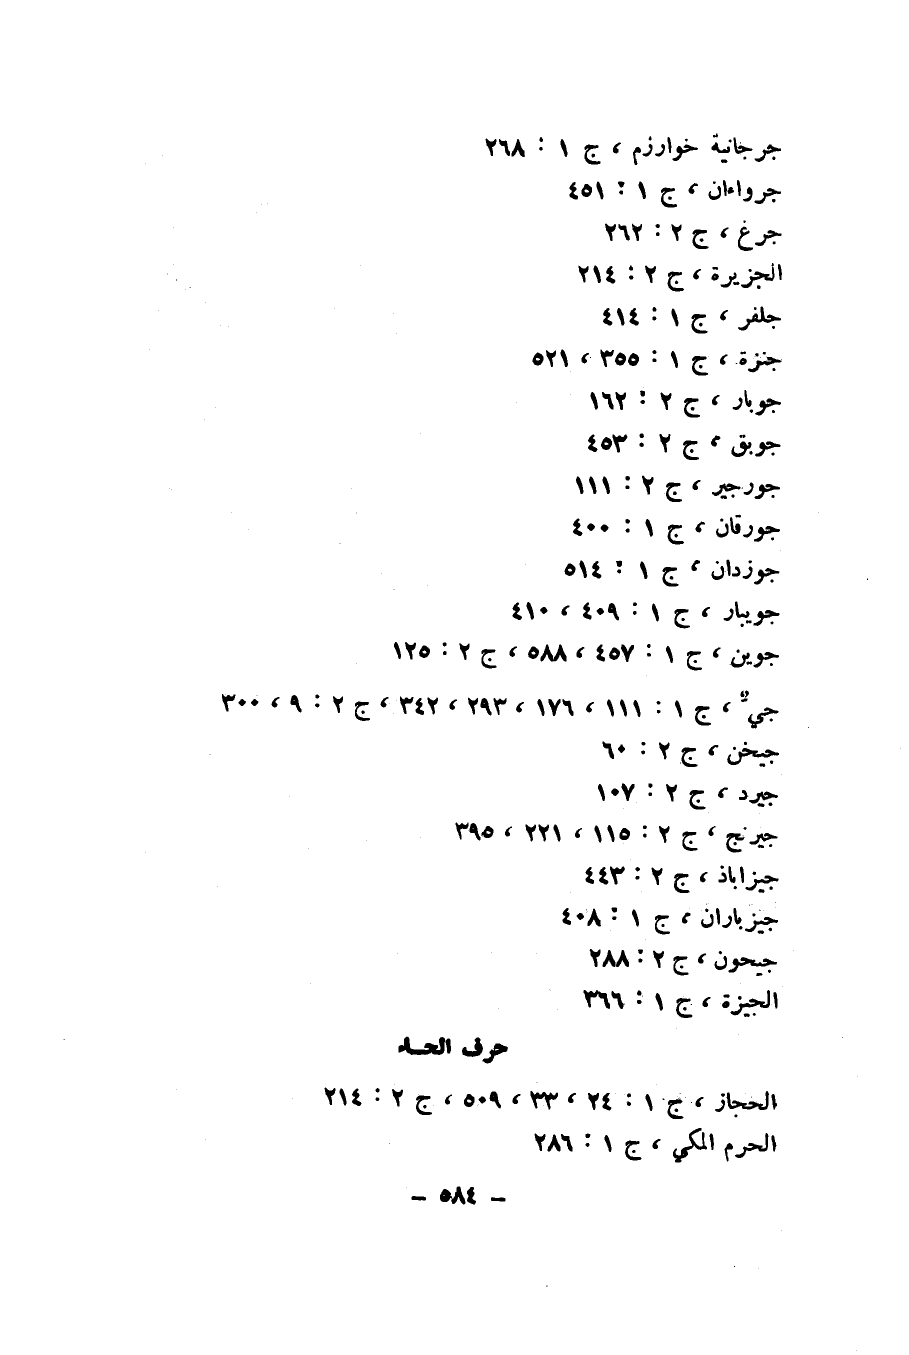 جرجانية خوارزم ، ج ١ : ٢٦٨
جرواءان ، ج ١ : ٤٥١
جرغ ، ج ٢ : ٢٦٢
الجزيرة ، ج ٢ : ٢١٤
جلفر ، ج ١ : ٤١٤
جنزة ، ج ١ : ٣٥٥ ، ٥٢١
جوبار ، ج ٢ : ١٦٢
جوبق ، ج ٢ : ٤٥٣
جورجير ، ج ٢ : ١١١
جورقان ، ج ١ : ٤٠٠
جوزدان ، ج ١ : ٥١٤
جويبار ، ج ١ : ٤٠٩ ، ٤١٠
جوين ، ج ١ : ٤٥٧ ، ٥٨٨ ، ج ٢ : ١٢٥
جيٌّ ، ج ١ : ١١١ ، ١٧٦ ، ٢٩٣ ، ٣٤٢ ، ج ٢ : ٩ ، ٣٠٠
جيخن ، ج ٢ : ٦٠
جيرد ، ج ٢ : ١٠٧
جيرنج ، ج ٢ : ١١٥ ، ٢٢١ ، ٣٩٥
جيزاباذ ، ج ٢ : ٤٤٣
جيزباران ، ج ١ : ٤٠٨
جيحون ، ج ٢ : ٢٨٨
الجيزة ، ج ١ : ٣٦٦
حرف الحاء
الحجاز ، ج ١ : ٢٤ ، ٣٣ ، ٥٠٩ ، ج ٢ : ٢١٤
الحرم المكي ، ج ١ : ٢٨٦
– ٥٨٤ –